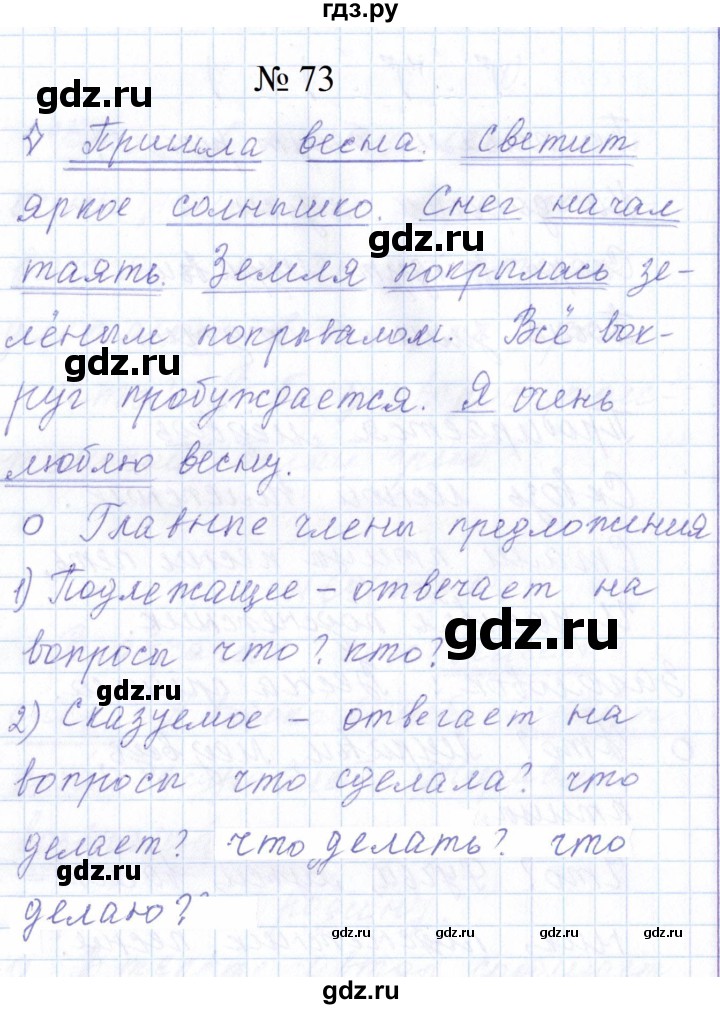 гдз.ру
№ 73
gdz.ru
◊ Пришла весна. Светит
яркое солнышко. Снег начал
gdz.ru
таять. Земля покрылась зе-
лёным покрывалом. Всё вок-
gdz.ru
руг пробуждается. Я очень
люблю весну.
О Главные члены предложения
1) Подлежащее – отвечает на
gdz.ru
вопросы что? кто?
gdz.ru
2) Сказуемое – отвегает на
вопросы что сделала? что
делает? что делать? что
gdz.ru
делаю?
gdz.ru gdz.ru gdz.ru
gdz.ru